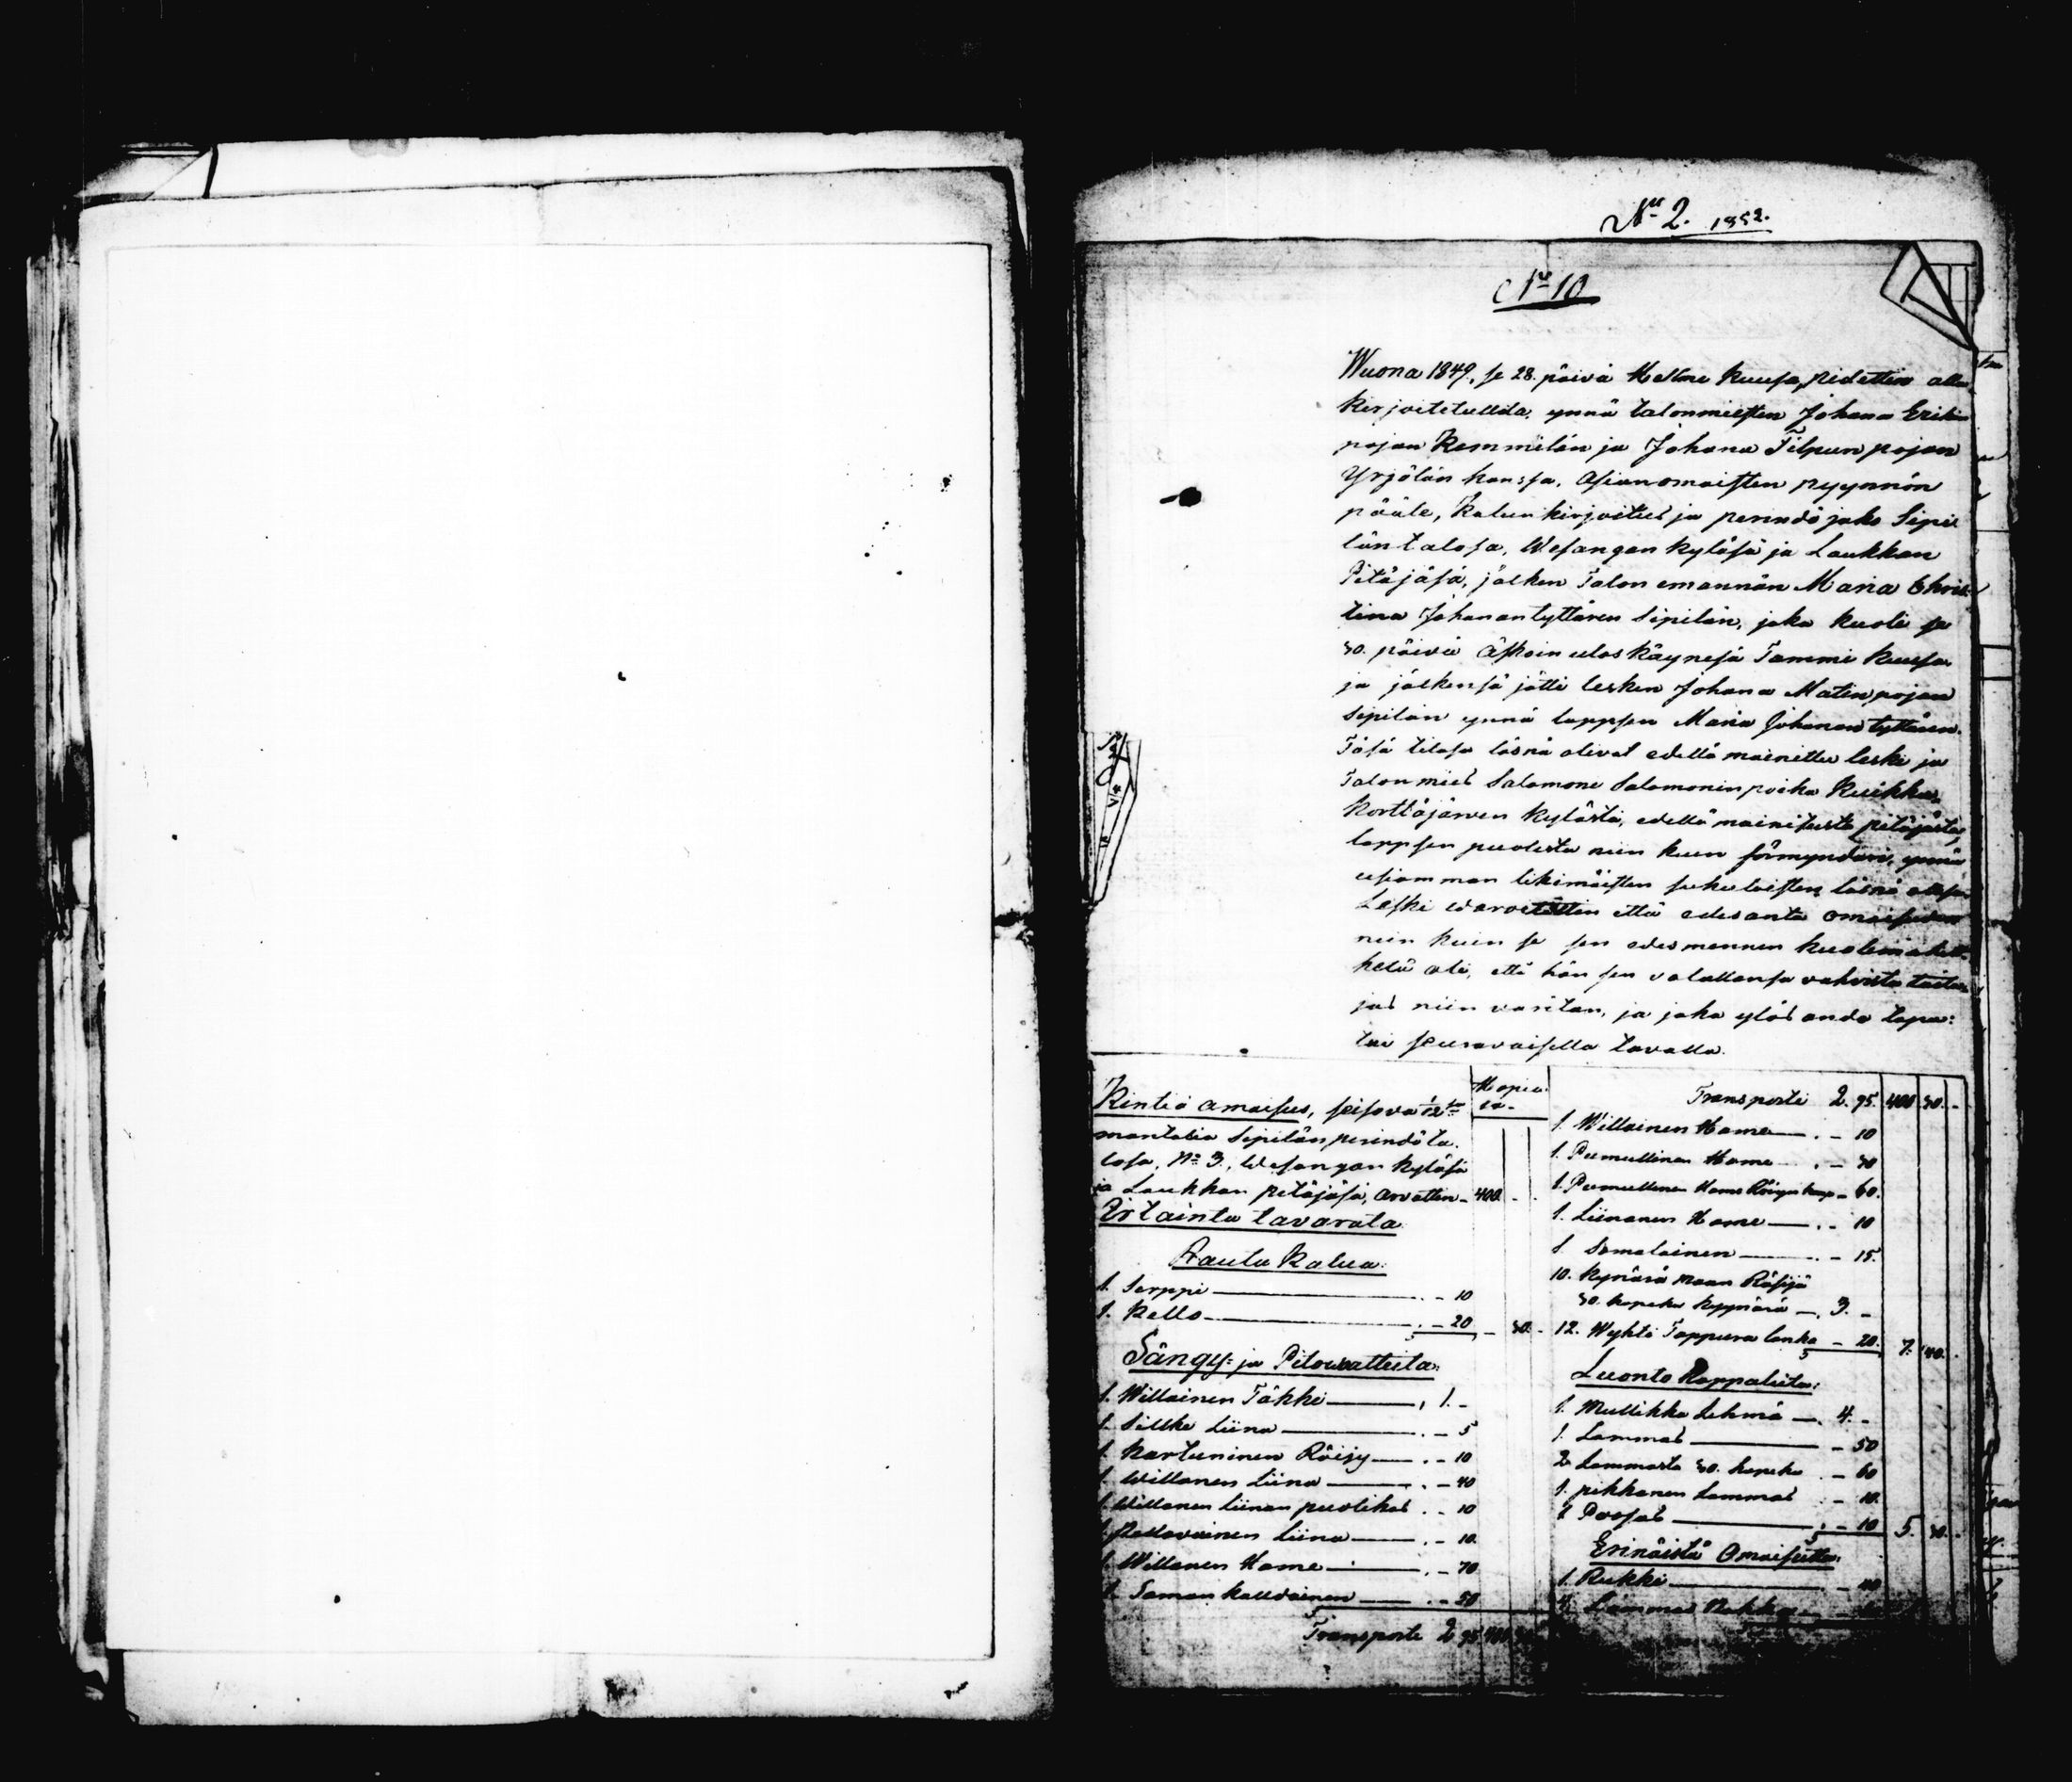 No 2. 1852.
No 10
Wuona 1849, se 28. päivä Helme kuusa, pidettin alla
kirjoitetullda, ynnä talonmiesten Johana Erikin
pojan Kemmilän ja Johana Filpun pojan
Yrjölän kanssa, Asianomaisten pyynnön
pääle, Kalunkirjoitus ja perindö jako Sipi
län talosa, Wesangan kyläsä ja Laukkan
Pitäjäsä, jälken Talon emannän Maria Chris:
tina Johanantyttären Sipilän, joka kuoli se
30. päivä Äskoin uloskäynesä Tammi kuusa
ja jälkensä jätti lesken Johana Matinpojan
Sipilän ynnä lappsen Maria Johanantyttären.
Täsä tilasa läsnä olivat edellä mainittu leski ja
Talon mies Salomone Salomonin poika Kuikka,
Korttäjärven kylästä, edellä mainitusta pitäjästä,
lappsen puolesta niin kuun förmyndäri, ynnä
usiamman likimäisten sukulaisten läsnä ollesa.
Leski varoitettin että edesanta omaisuden
niin kuin se sen edesmennen kuoleman
helä oli, että hän sen valallansa vahvista taita,
jos niin varitan, ja joka ylös ando tapa:
tui seuravaisella tavalla.
Kintiä omaisus, seisova 1/12
mantalia Sipilän perindö ta
losa, No 3, Wesangan kyläsä
ja Laukkan pitäjäsä, arvattin - 400. -
Hopia
Irtainta tavarata
Rauta Kalua:
1. Serppi . - 10
1. Kello . - 20 - 30. -
Sängy- ja Pitovatteita:
1. Willainen Täkki , 1. -
1. Silkke Liina . - 5
1. Kartuninen Röijy . - 10
1. Willanen Liina . - 40
1. Willanen liinan puolikas . - 10
1. Pallavainen Liina . - 10.
1. Willanen Hame . - 70
1. Saman kalldainen . - 50
Transporte 2 95 400 30
Transporti 2. 95. 400 30. -
1. Willainen Hame . - 10
1. Pumullinen Hame . - 30
1. Pumullinen Hame Röijyn kans - 60.
1. Liinanen Hame . - 10
1. Samalainen . - 15.
10. Kynärä maan Räsijä
30. kopeka kyynärä . 3. -
12. Wyhti Tappura lanka - 20. 7. 40. -
Luonto Kappaleita:
1. Mullikka Lehmä . 4. -
1. Lammas - 50
2 Lammasta 30. kopeka . - 60
1. pikkanen Lammas . - 10.
1 Porsas . - 10 5. 30. -
Erinäistä Omaisutta:
1. Rukki - 40